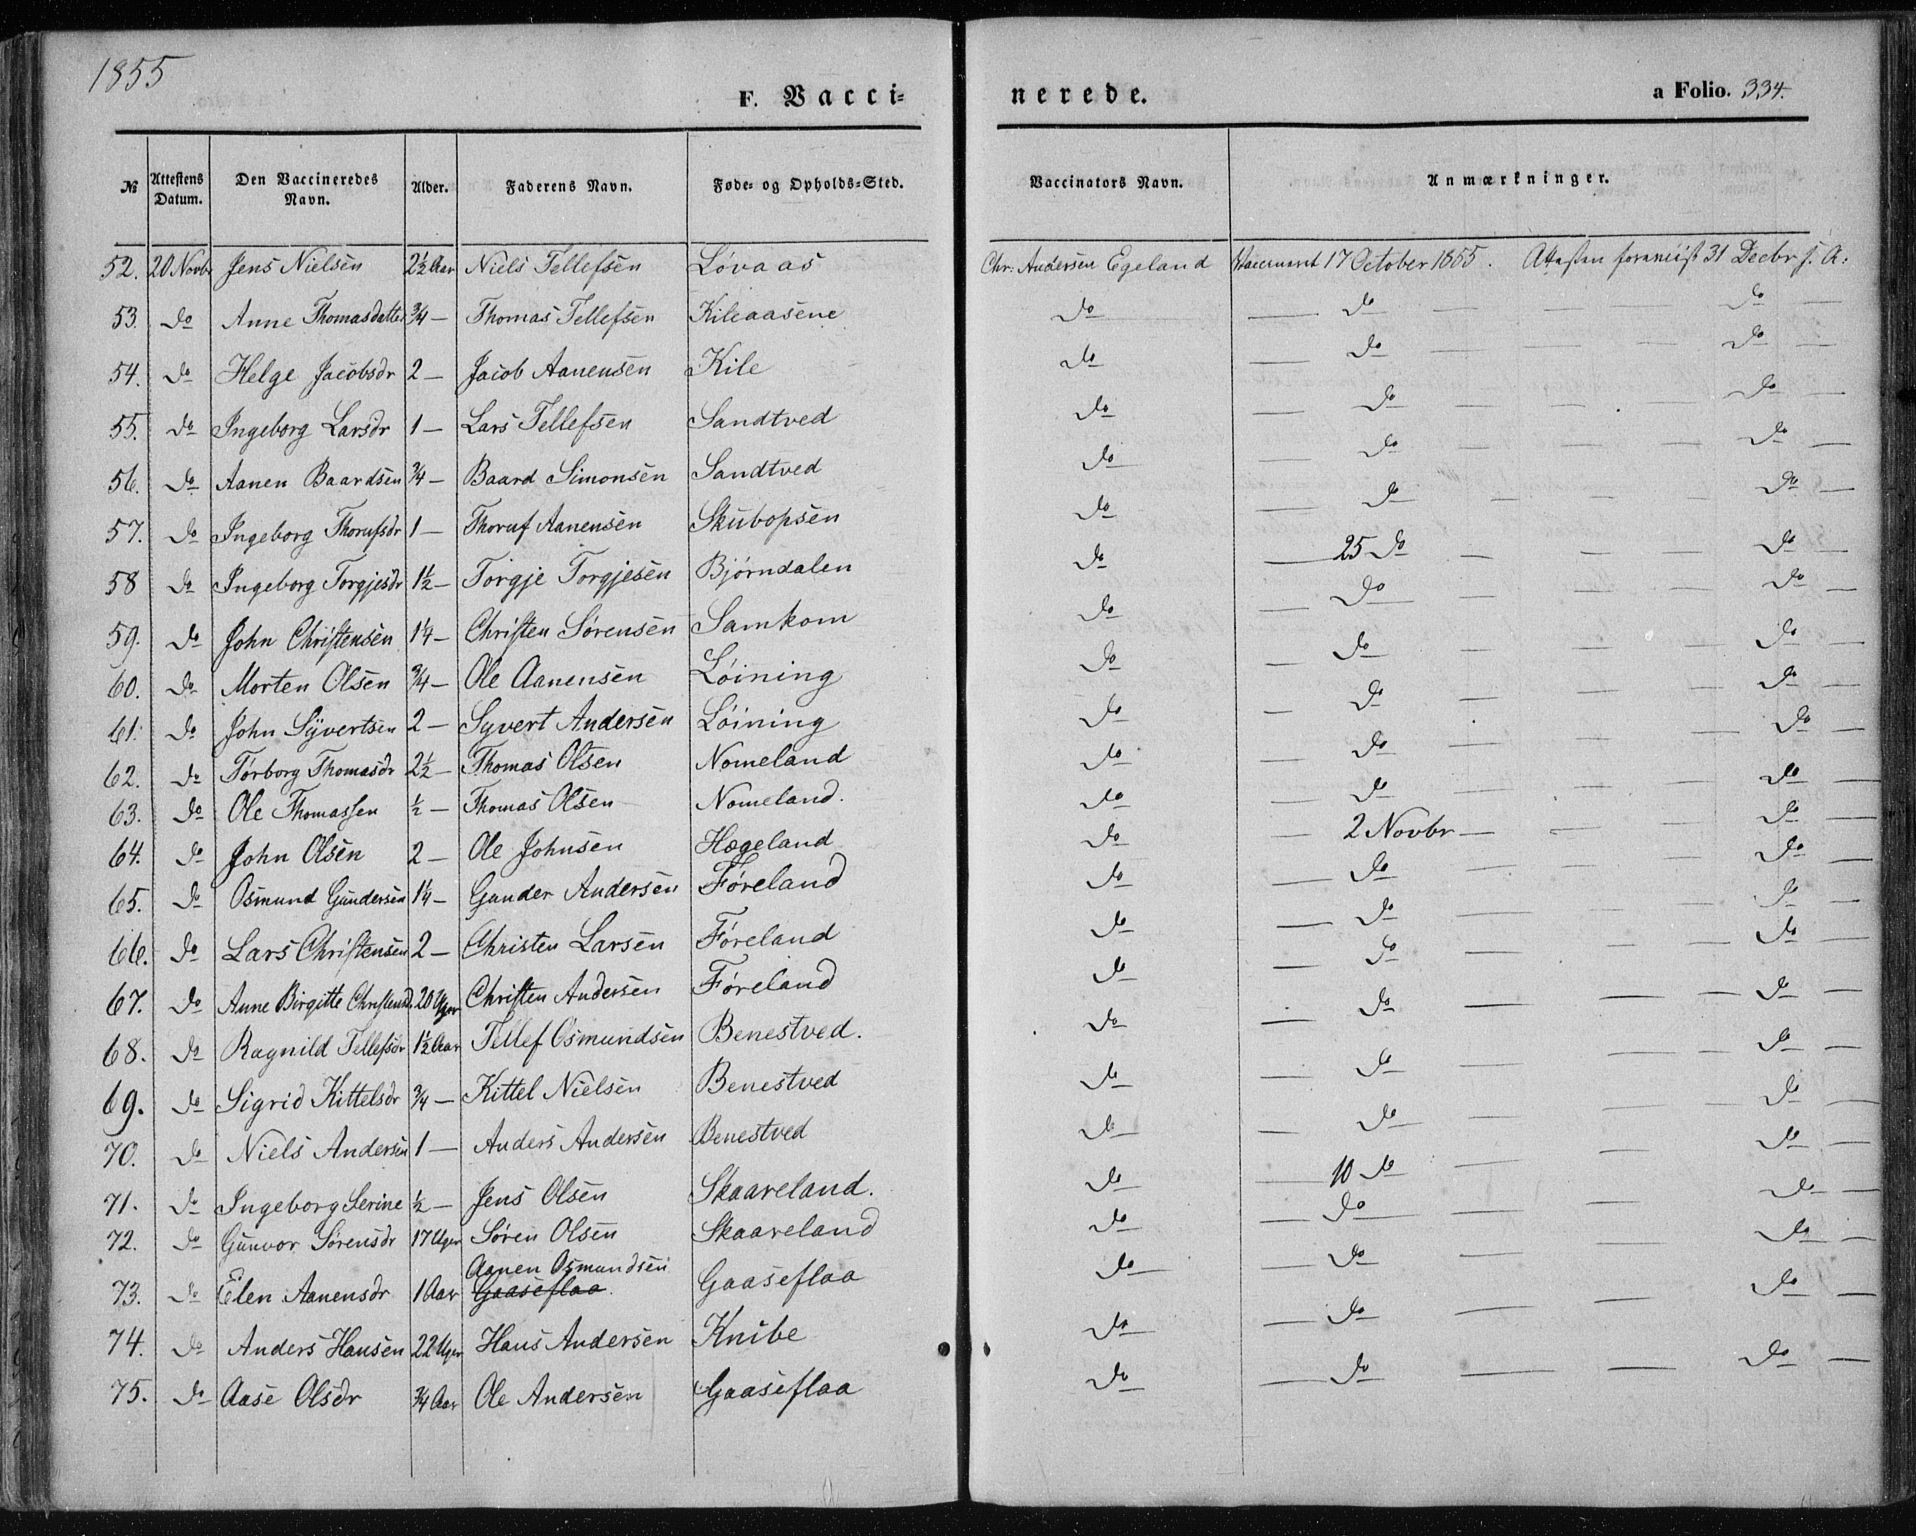 1855
F. Vacci- nerede. a Folio. 334.
№ Attestens Datum. Den Vaccineredes Navn. Alder. Faderens Navn. Føde- og Opholds-Sted. Vaccinators Navn. Anmærkninger.
52. 20 Novbr Jens Nielsen 2½ Aar Niels Tellefsen Lövaas Chr. Andersen Egeland Vaccineret 17 October 1855. Attesten forevist 31 Decbr s. A:
53. do Anne Thomasdatter ¾ — Thomas Tellefsen Kileaasene do — do — — — do —
54. do Helge Jacobsdr 2 — Jacob Aanensen Kile do — do — — — do —
55. do Ingeborg Larsdr 1 — Lars Tellefsen Sandtved do — do — — — do —
56. do Aanen Baardsen ¾ — Baard Simonsen Sandtved do — do — — — do —
57. do Ingeborg Thorufsdr 1 — Thoruf Aanensen Skubopsen do — do — — — do —
58 do Ingeborg Torgjesdr 1½ — Torgje Torgjesen Bjørndalen do — 25 do — — — do —
59. do John Christensen 1¼ — Christen Sørensen Samkom do — do — — — do —
60. do Morten Olsen ¾ — Ole Aanensen Løining do — do — — — do —
61. do John Syvertsen 2 — Syvert Andersen Løining do — do — — — do —
62. do Torborg Thomasdr 2½ — Thomas Olsen Nomeland do — do — — — do —
63. do Ole Thomassen ½ — Thomas Olsen Nomeland. do — do — — — do —
64. do John Olsen 2 — Ole Johnsen Hægeland do — 2 Novbr — — — do —
65. do Osmund Gundersen 1¼ — Gunder Andersen Føreland do — do — — — do —
66. do Lars Christensen 2 — Christen Larsen Føreland do — do — — — do —
67. do Anne Birgitte Christensd. 20 Uger Christen Andersen Føreland do — do — — — do —
68. do Ragnild Tellefsdr 1½ Aar Tellef Osmundsen Benestved. do — do — — — do —
69. do Sigrid Kittelsdr ¾ — Kittel Nielsen Benestved do — do — — — do —
70. do Niels Andersen 1 — Anders Andersen Benestved do — do — — — do —
71. do Ingeborg Serine ½ — Jens Olsen Skaareland. do — 10 do — — — do —
72. do Gunvor Sørensdr 17 Uger Søren Olsen Skaareland do — do — — — do —
Aanen Osmundsen
73. do Elen Aanensdr 1 Aar Gaaseflaa. Gaaseflaa do — do — — — do —
74. do Anders Hansen 22 Uger Hans Andersen Knibe do — do — — —
75. do Aase Olsdr ¾ Aar Ole Andersen Gaaseflaa do — do — — — do —